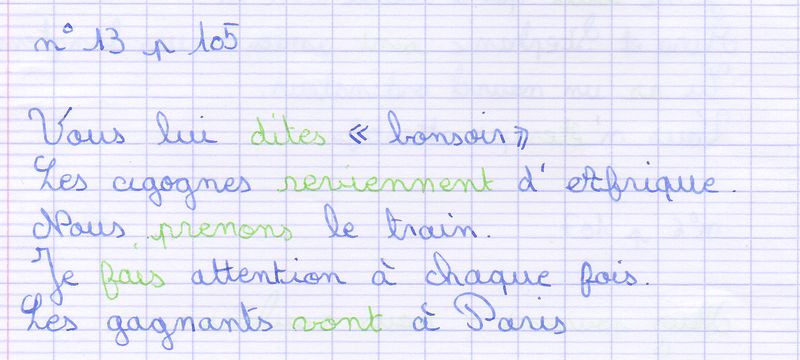 n° 13 p 105
Vous lui dites « bonsoir»
Les cigognes reviennent d' Afrique.
Nous prenons le train.
Je fais attention à chaque fois.
Les gagnants vont à Paris